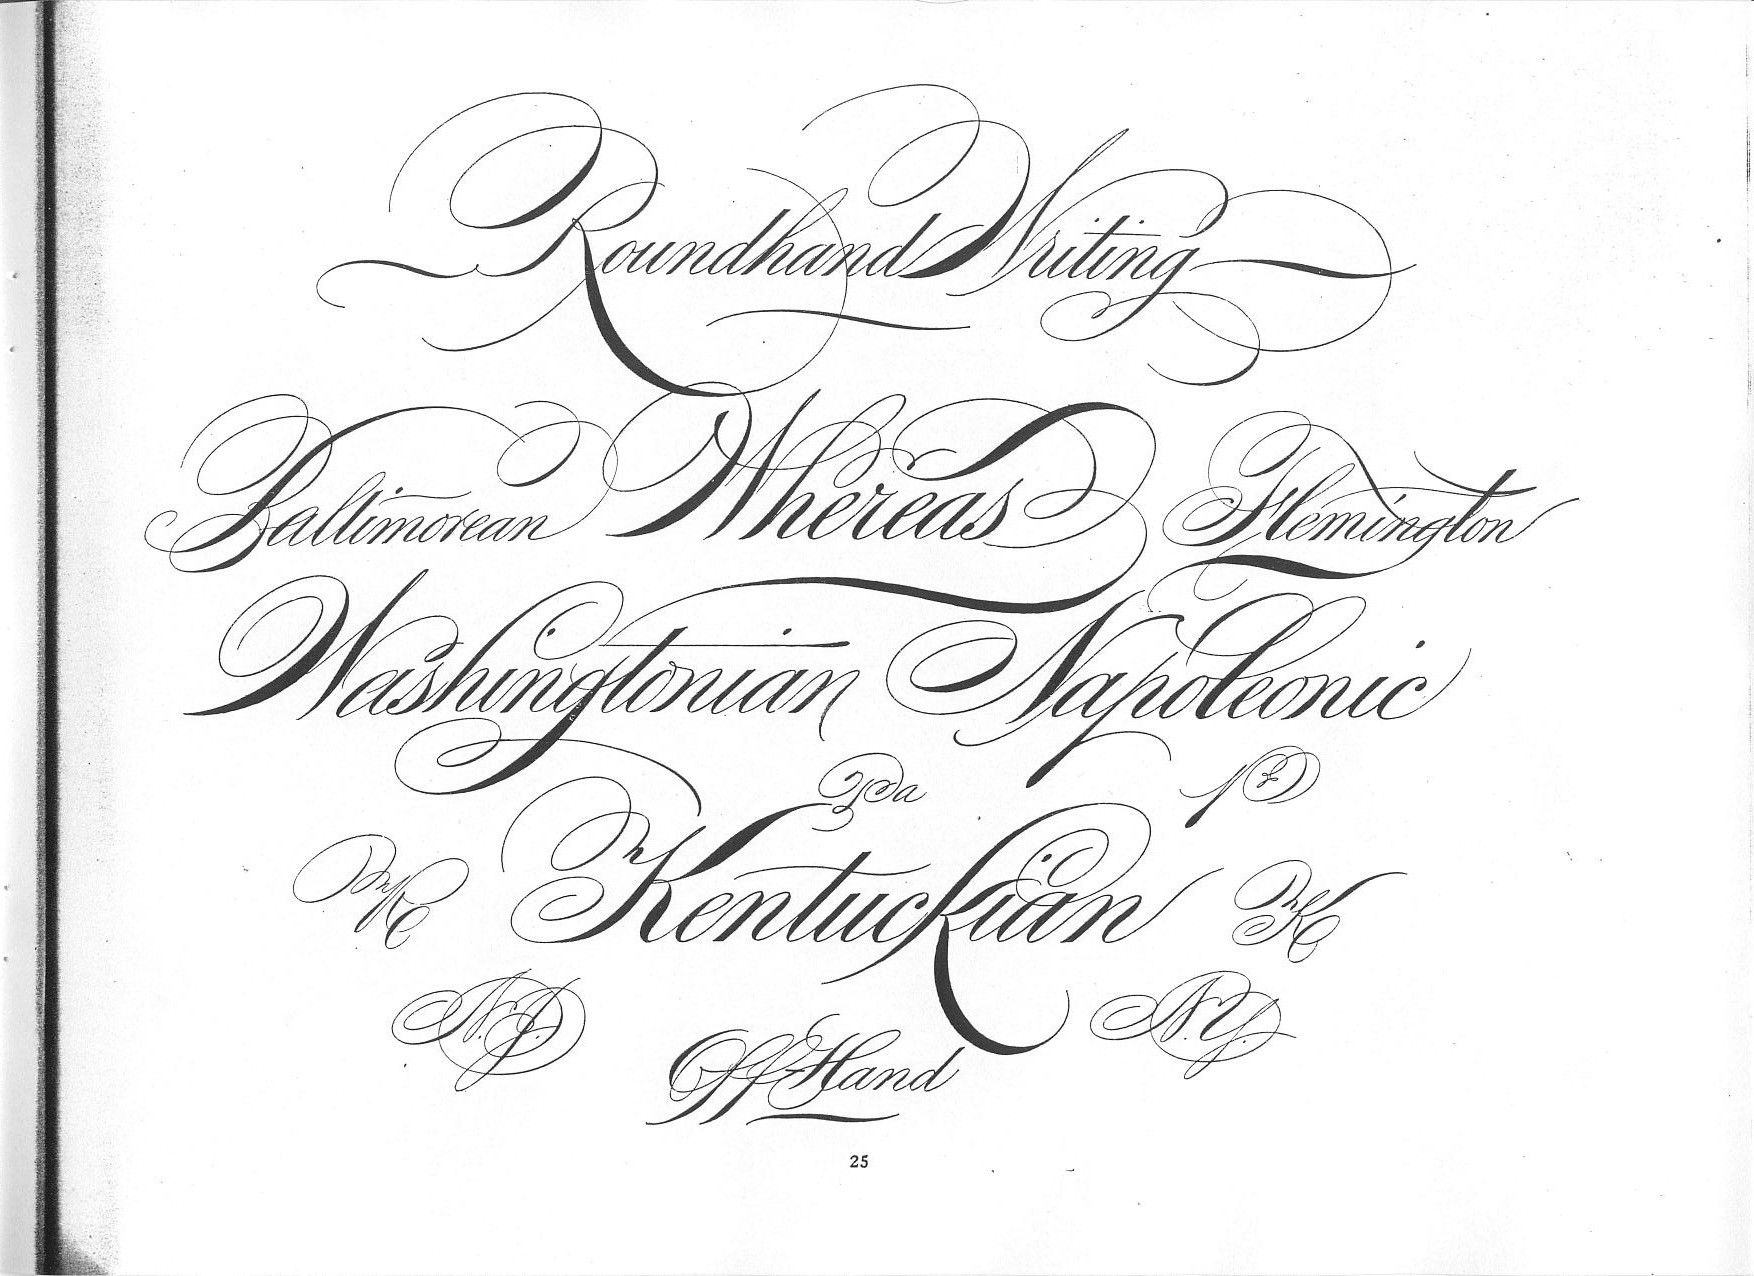 Roundhand Writing
Baltimorean Whereas Flemington
Washingtonian Napoleonic
Pa
Kentuckian
N.J. N.Y.
Off Hand
25